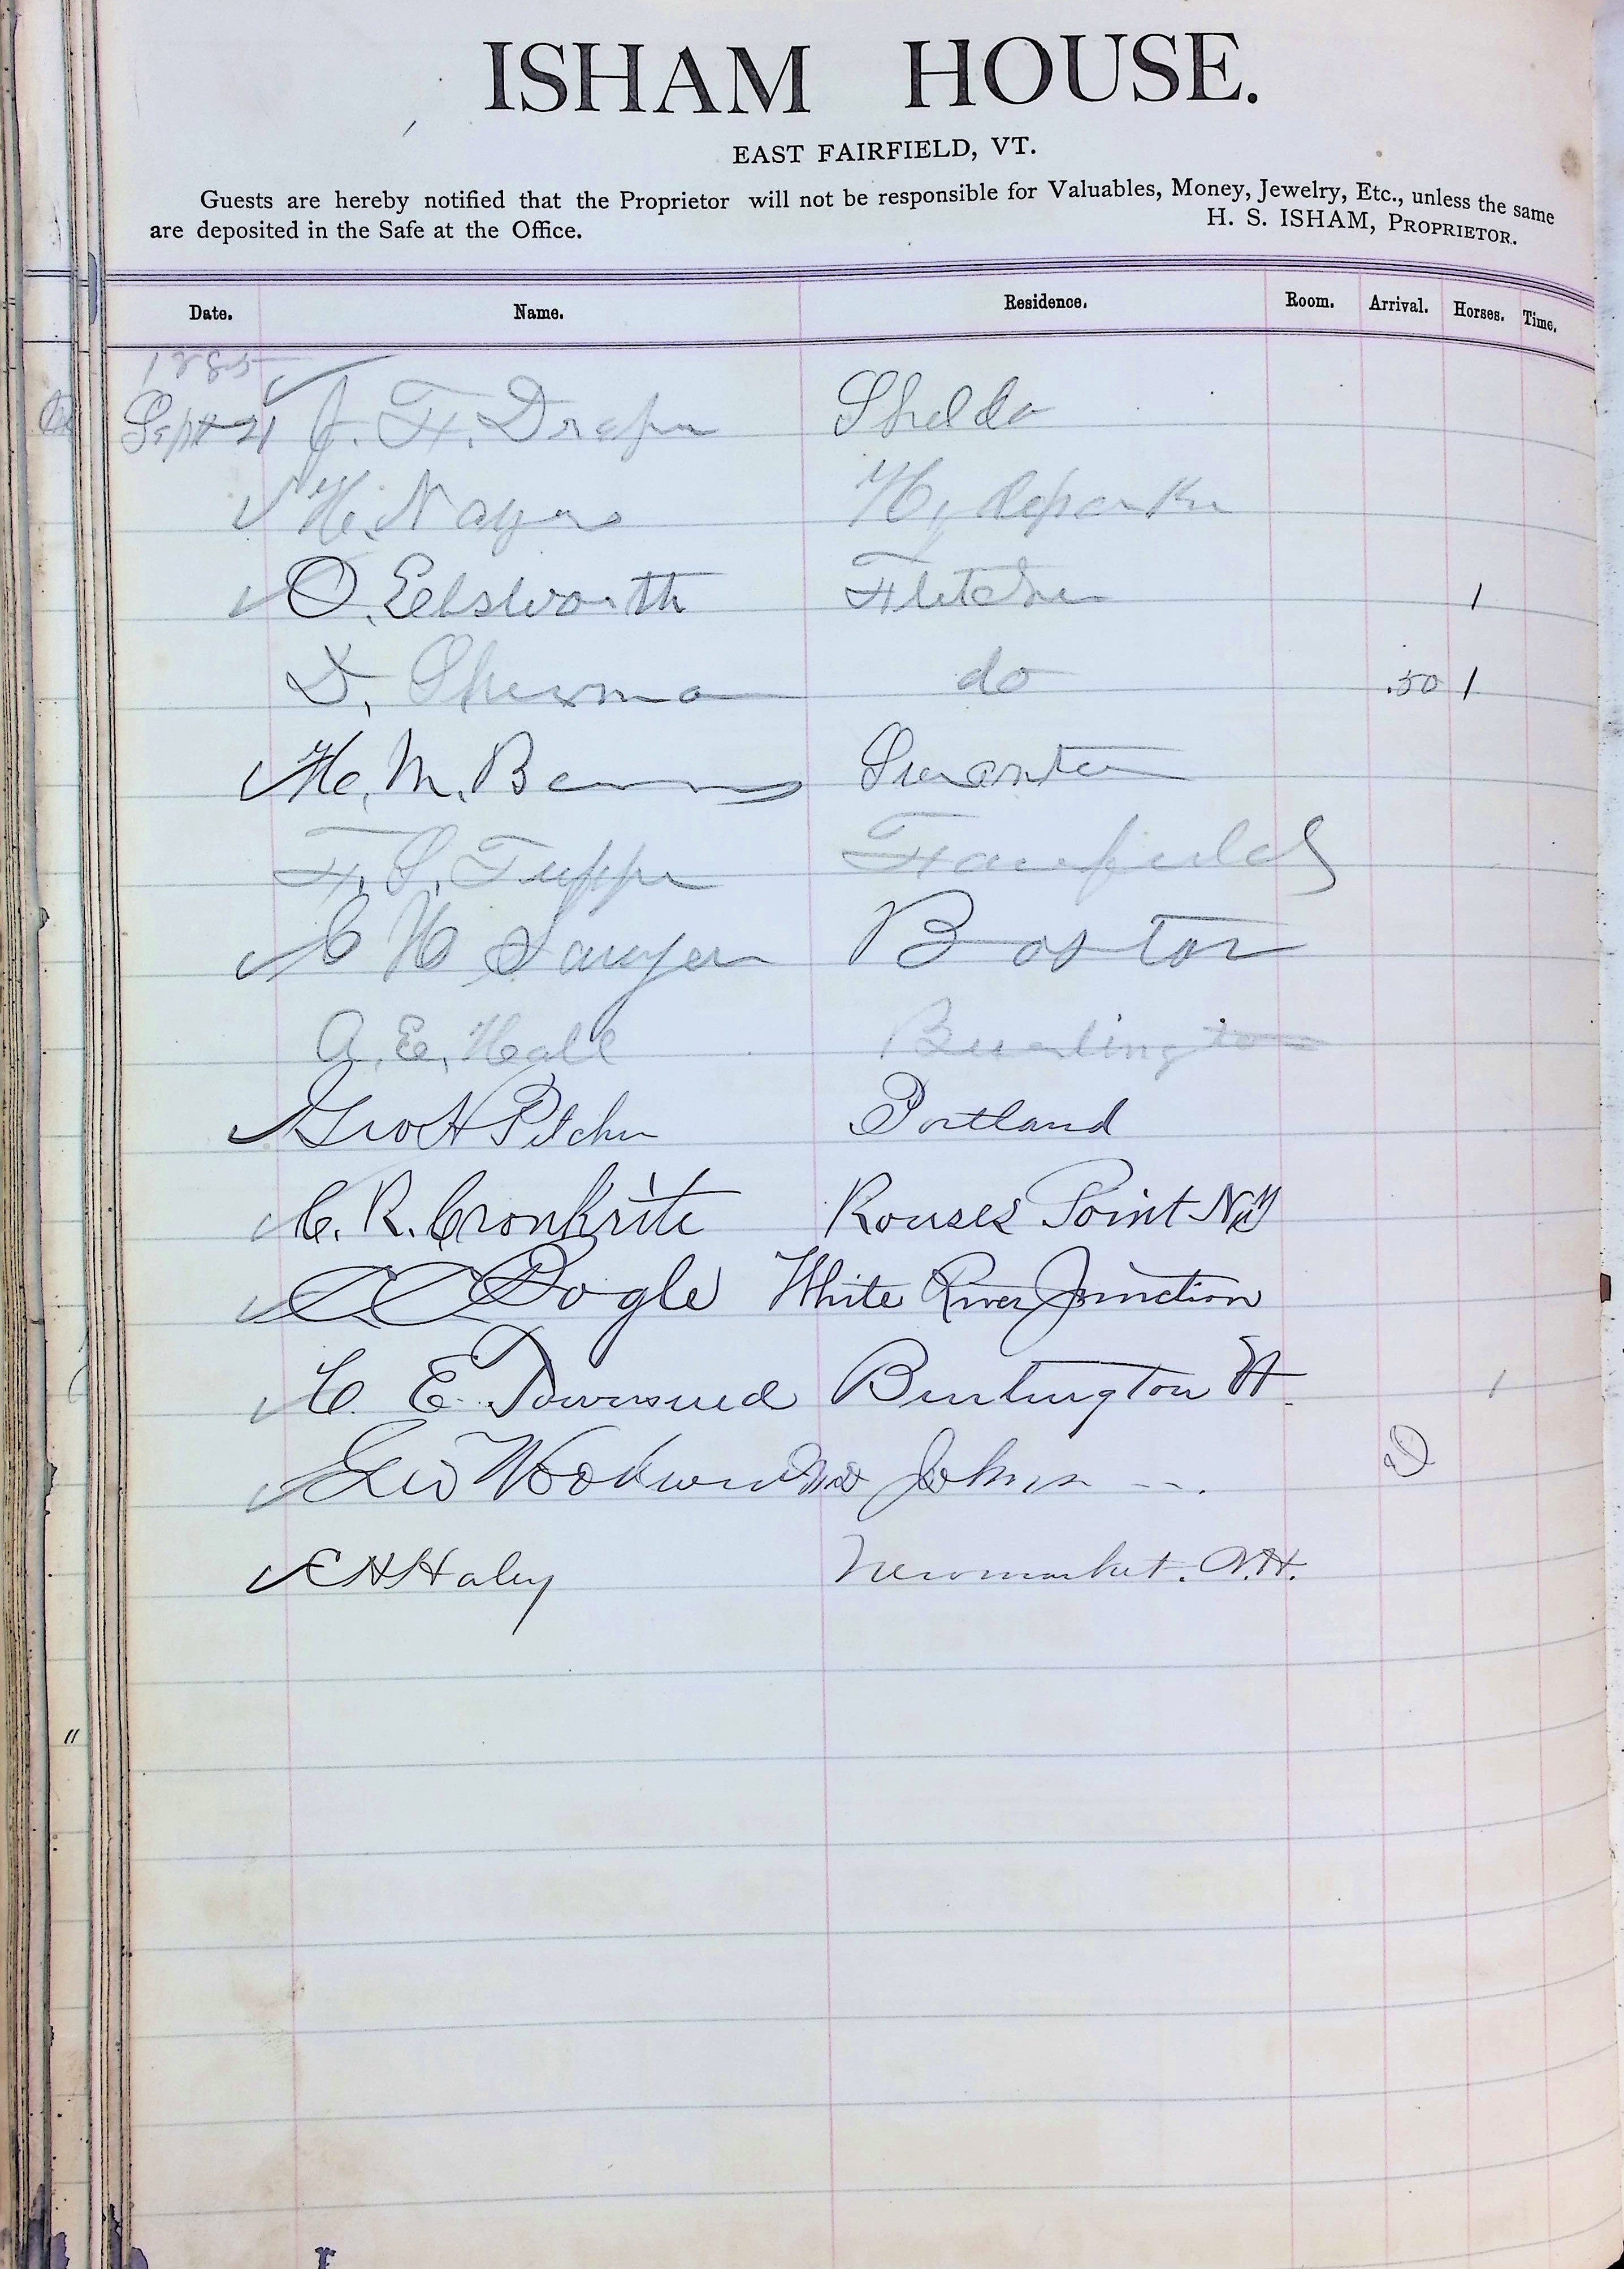 ISHAM HOUSE.
EAST FAIRFIELD, VT.
Guests are hereby notified that the Proprietor will not be responsible for Valuables, Money, Jewelry, Etc., unless the same
are deposited in the Safe at the Office. H. S. ISHAM, PROPRIETOR.
Date. Name. Residence. Room. Arrival. Horses. Time.
1885
Sept 21 J. F. Draper Sheldo
H. Hyde
O. Ellsworth Fletcher 1
D. Sherman do .50 1
H. M. Swanton
F. S. Tupper Fairfield
C H Sawyer Boston
A. E. Hall Burlington
Geo H Pitcher Portland
C. R. Cronkrite Rouses Point NY
C C Bogle White River Junction
C. E. Townsend Burlington Vt
Geo Woodward Johnson D
E H Haley Newmarket. N.H.
"